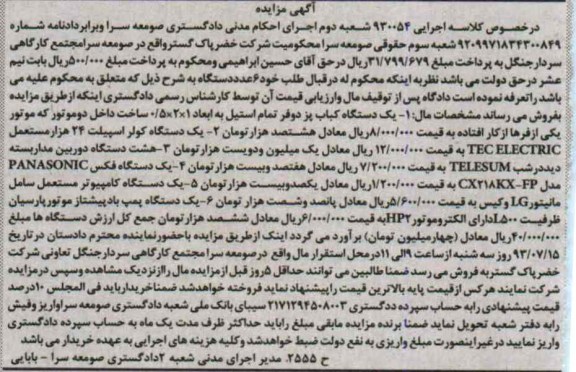 آگهی مزایده
درخصوص کلاسه اجرایی ۹۳۰۰۵۴ شعبه دوم اجرای احکام مدنی دادگستری صومعه سرا وبرابردادنامه شماره
۹۲۰۹۹۷۱۸۳۴۳۰۰۸۴۹ شعبه سوم حقوقی صومعه سرا محکومیت شرکت خضرپاک گسترواقع در صومعه سرامجتمع کارگاهی
سردارجنگل به پرداخت مبلغ ۳۱/۷۹۹/۶۷۹ریال درحق آقای حسین ابراهیمی ومحکوم به پرداخت مبلغ ۵۰۰/۰۰۰ریال بابت نیم
عشر درحق دولت می باشد نظربه اینکه محکوم له درقبال طلب خود۶عدددستگاه به شرح ذیل که متعلق به محکوم علیه می
باشد راتعرفه نموده است دادگاه پس از توقیف مال وارزیابی قیمت آن توسط کارشناس رسمی دادگستری اینکه ازطریق مزایده
بفروش می رساند مشخصات مال:۱- یک دستگاه کباب پز دوفر تمام استیل به ابعاد ۲×۱×۰/۵ ساخت داخل دوموتور که موتور
یکی ازفرها ازکار افتاده به قیمت ۸/۰۰۰/۰۰۰ریال معادل هشتصد هزارتومان ۲- یک دستگاه کولر اسپیلت ۲۴ هزارمستعمل
TEC ELECTRIC به قیمت ۱۲/۰۰۰/۰۰۰ ریال معادل یک میلیون ودویست هزارتومان ۳-هشت دستگاه دوربین مداربسته
دیددرشب TELESUM به قیمت ۷/۲۰۰/۰۰۰ ریال معادل هفتصد وبیست هزارتومان ۴-یک دستگاه فکس PANASONIC
مدل CX۲۱۸KX-FP به قیمت ۱/۲۰۰/۰۰۰ریال معادل یکصدوبیست هزار تومان ۵-یک دستگاه کامپیوتر مستعمل سامل
مانیتورLG وکیس به قیمت ۵/۶۰۰/۰۰۰ریال معادل پانصد وشصت هزار تومان ۶-یک دستگاه پمپ بادپیشتاز موتورپارسیان
ظرفیت L۵۰۰دارای الکتروموتور۲HPبه قیمت ۶/۰۰۰/۰۰۰ریال معادل ششصد هزارتومان جمع کل ارزش دستگاه ها مبلغ
۴۰/۰۰۰/۰۰۰ریال معادل (چهارمیلیون تومان) برآورد می گردد اینک ازطریق مزایده باحضورنماینده محترم دادستان در تاریخ
۹۳/۰۷/۱۵ روز سه شنبه ازساعت ۹الی ۱۱ درمحل استقرار مال واقع درصومعه سرامجتمع کارگاهی سردارجنگل تعاونی شرکت
خضرپاک گستربه فروش می رسد ضمنا طالبین می توانند حداقل ۵روز قبل ازمزایده مال راازنزدیک مشاهده وسپس درمزایده
شرکت نمایند هرکس ازقیمت پایه بالاترین قیمت راپیشنهاد نماید فروخته خواهدشد ضمناخریدارباید فی المجلس ۱۰درصد
قیمت پیشنهادی رابه حساب سپرده ددگستری ۲۱۷۱۲۹۴۵۰۸۰۰۳ سیبای بانک ملی شعبه دادگستری صومعه سراواریز وفیش
رابه دفتر شعبه تحویل نماید ضمنا برنده مزایده مابقی مبلغ راباید حداکثر ظرف مدت یک ماه به حساب سپرده دادگستری
واریز نمایید درغیراینصورت مبلغ واریزی به نفع دولت ضبط خواهدشد وکلیه هزینه های اجرایی به عهده خریدار می باشد
ح ۲۵۵۵. مدیر اجرای مدنی شعبه ۲دادگستری صومعه سرا - بابایی